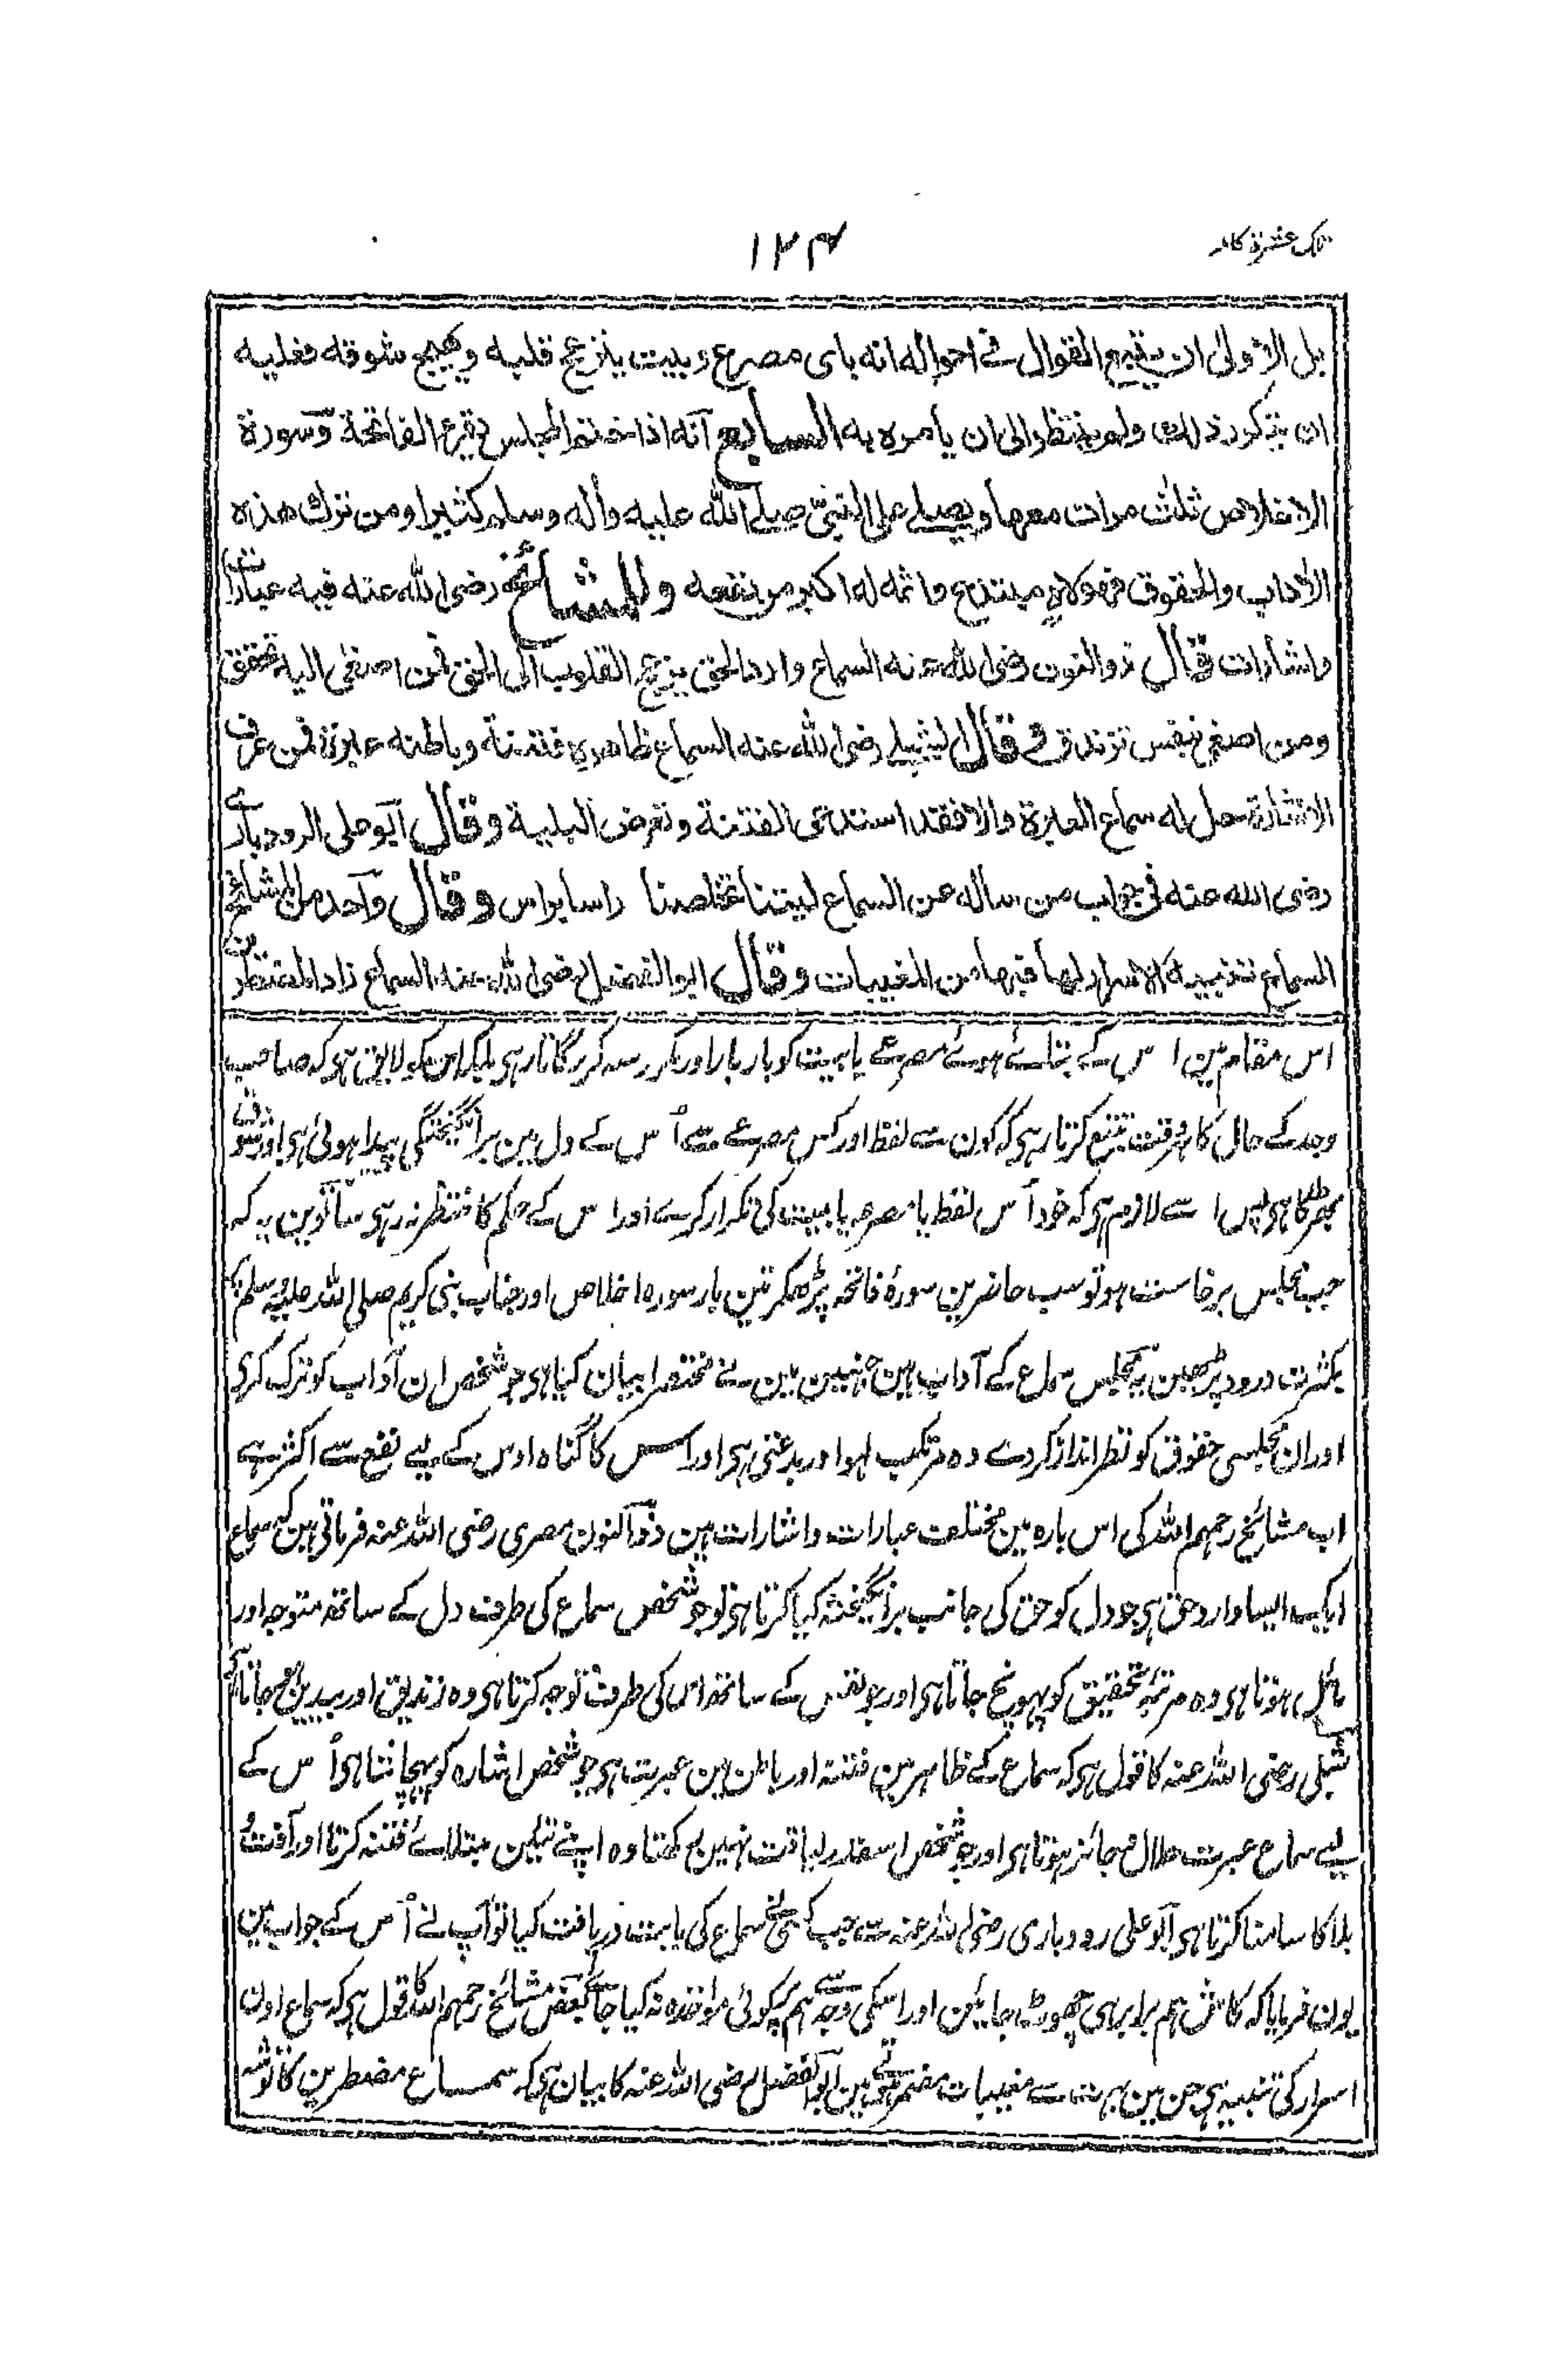 تلک عشرۃ کاملہ
۱۲۴
بل الاولیٰ ان یتتبع القوال فی احوالہ انہ بای مصرع وبیت ینزعج قلبہ ویھیج شوقہ فعلیہ
ان یتکرر ذلک ولم ینتظر الی ان یامرہ بہ السابع آنہ اذا ختم المجلس فیقرء الفاتحۃ وسورۃ
الاخلاص ثلٰث مرات معھا ویصلے علی النبیّ صلے اللہ علیہ واٰلہ وسلم کثیرا ومن ترک ھذہ
الآداب والحقوق فھو لاہٍ مبتدع واثمہ لہ اکبر من نفعہ وللمشائخ رضی اللہ عنہ فیہ عبارات
واشارات فقال ذوالنون رضی اللہ عنہ السماع وارد الحق یزعج القلوب الی الحق فمن اصغی الیہ تحقق
ومن اصغی بنفس تزندق وقال الشبلے رضی اللہ عنہ السماع ظاھرہ فتنۃ وباطنہ عبرۃ فمن عرف
الاشارۃ حل لہ سماع العبرۃ والا فقد استدعی الفتنۃ وتعرض البلیۃ وقال آبو علی الرودباری
رضی اللہ عنہ فی جواب من سألہ عن السماع لیتنا تخلصنا راسا براس وقال وآحد من المشائخ
السماع تنبیہ الاسرار لما فیہا من المغیبات وقال ابو الفضل رضی اللہ عنہ السماع زاد المضطرین
اس مقام مین اس کے بتائے ہوئے مصرعے یا بیت کو بار بار اور مکرر سہ کرر گاتا رہی بلکہ اسکو لایق ہی کہ صاحب
وجد کے حال کا ہر وقت تتبع کرتا رہی کہ کون سے لفظ اور کس مصرعے سے اُس کے دل مین برانگیختگی پیدا ہوئی ہی اور شوق
بھڑکا ہی پس اسے لازم ہی کہ خود اُس لفظ یا مصرعہ یا بیت کی تکرار کرے اور اس کے حکم کا منتظر نہ رہی ساتوین یہ کہ
جب مجلس برخاست ہو تو سب حاضرین سورۂ فاتحہ پڑھکر تین بار سورہ اخلاص اور جناب نبی کریم صلی اللہ علیہ وسلم پر
بکثرت درود پڑھین یہ مجلس سماع کے آداب ہین جنہین مین نے مختصرا بیان کیا ہی جو شخص ان آداب کو ترک کری
اور ان مجلسی حقوق کو نظر انداز کردے وہ مرتکب لہو اور بدعتی ہی اور اس کا گناہ اوس کے لیے نفع سے اکثر ہے
اب مشائخ رحمہم اللہ کی اس بارہ مین مختلف عبارات واشارات ہین ذوآلنون مصری رضی اللہ عنہ فرماتی ہین کہ سماع
ایک ایسا وارد حق ہی جو دل کو حق کی جانب برانگیختہ کیا کرتا ہی تو جو شخص سماع کی طرف دل کے ساتھ متوجہ اور
مائل ہوتا ہی وہ مرتبۂ تحقیق کو پہونچ جاتا ہی اور جو نفس کے ساتھ اس کی طرف توجہ کرتا ہی وہ زندیق اور بیدین ہو جاتا ہی
شبلی رضی اللہ عنہ کا قول ہی کہ سماع کے ظاہر مین فتنہ اور باطن مین عبرت ہی جو شخص اشارہ کو پہچانتا ہی اُس کے
لیے سماع عبرت حلال و جائز ہوتا ہی اور جو شخص اسقدر لیاقت نہین رکھتا وہ اپنے تئین مبتلائے فتنہ کرتا اور آفت و
بلا کا سامنا کرتا ہی آبو علی رودباری رضی اللہ عنہ سے جب کسی نے سماع کی بابت دریافت کیا تو آپ نے اُس کے جواب مین
یون فرمایا کہ کاش ہم برابر ہی چھوٹ جائین اور اسکی وجہ سے ہم پر کوئی مواخذہ نہ کیا جائے بعض مشائخ رحمہم اللہ کا قول ہی کہ سماع اون
اسرار کی تنبیہ ہی جن مین بہت سے مغیبات مضمر ہوتے ہین آبو الفضل رضی اللہ عنہ کا بیان ہی کہ سماع مضطرین کا توشہ